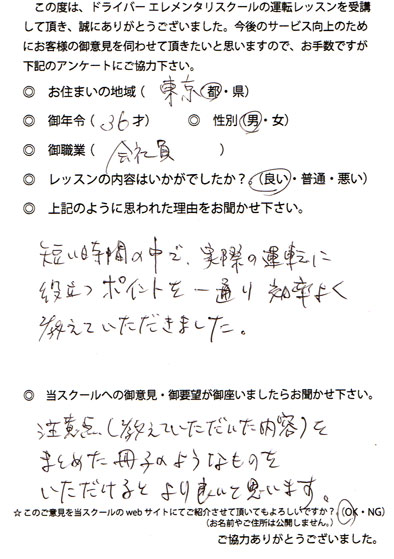 この度は、ドライバー エレメンタリスクールの運転レッスンを受講
して頂き、誠にありがとうございました。今後のサービス向上のため
にお客様の御意見を伺わせて頂きたいと思いますので、お手数ですが
下記のアンケートにご協力下さい。
◎ お住まいの地域（ 東京 都・県）
◎ 御年令（ 36 才） ◎ 性別（男・女）
◎ 御職業（ 会社員 ）
◎ レッスンの内容はいかがでしたか？（良い・普通・悪い）
◎ 上記のように思われた理由をお聞かせ下さい。
短い時間の中で、実際の運転に
役立つポイントを一通り効率よく
教えていただきました。
◎ 当スクールへの御意見・御要望が御座いましたらお聞かせ下さい。
注意点（教えていただいた内容）を
まとめた冊子のようなものを
いただけるとより良いと思います。
☆このご意見を当スクールの web サイトにてご紹介させて頂いてもよろしいですか？（OK・NG）
（お名前やご住所は公開しません。）
ご協力ありがとうございました。